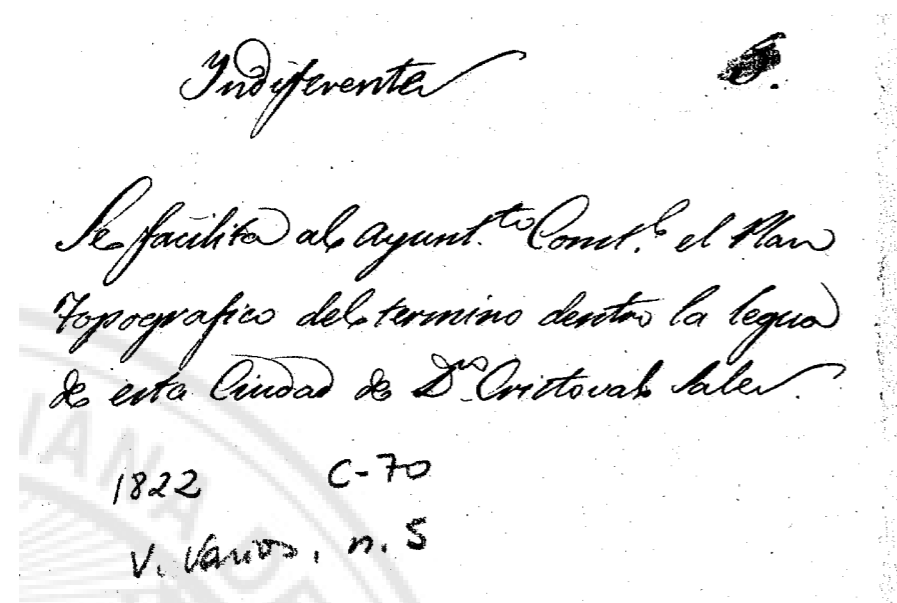 Indiferente 5.
Se facilita al Ayunt.to Const.l el Plan
Topografico del termino dentro la legua
de esta Ciudad de Dn Cristoval Sales.
1822 C-70
V. Varios, n. 5